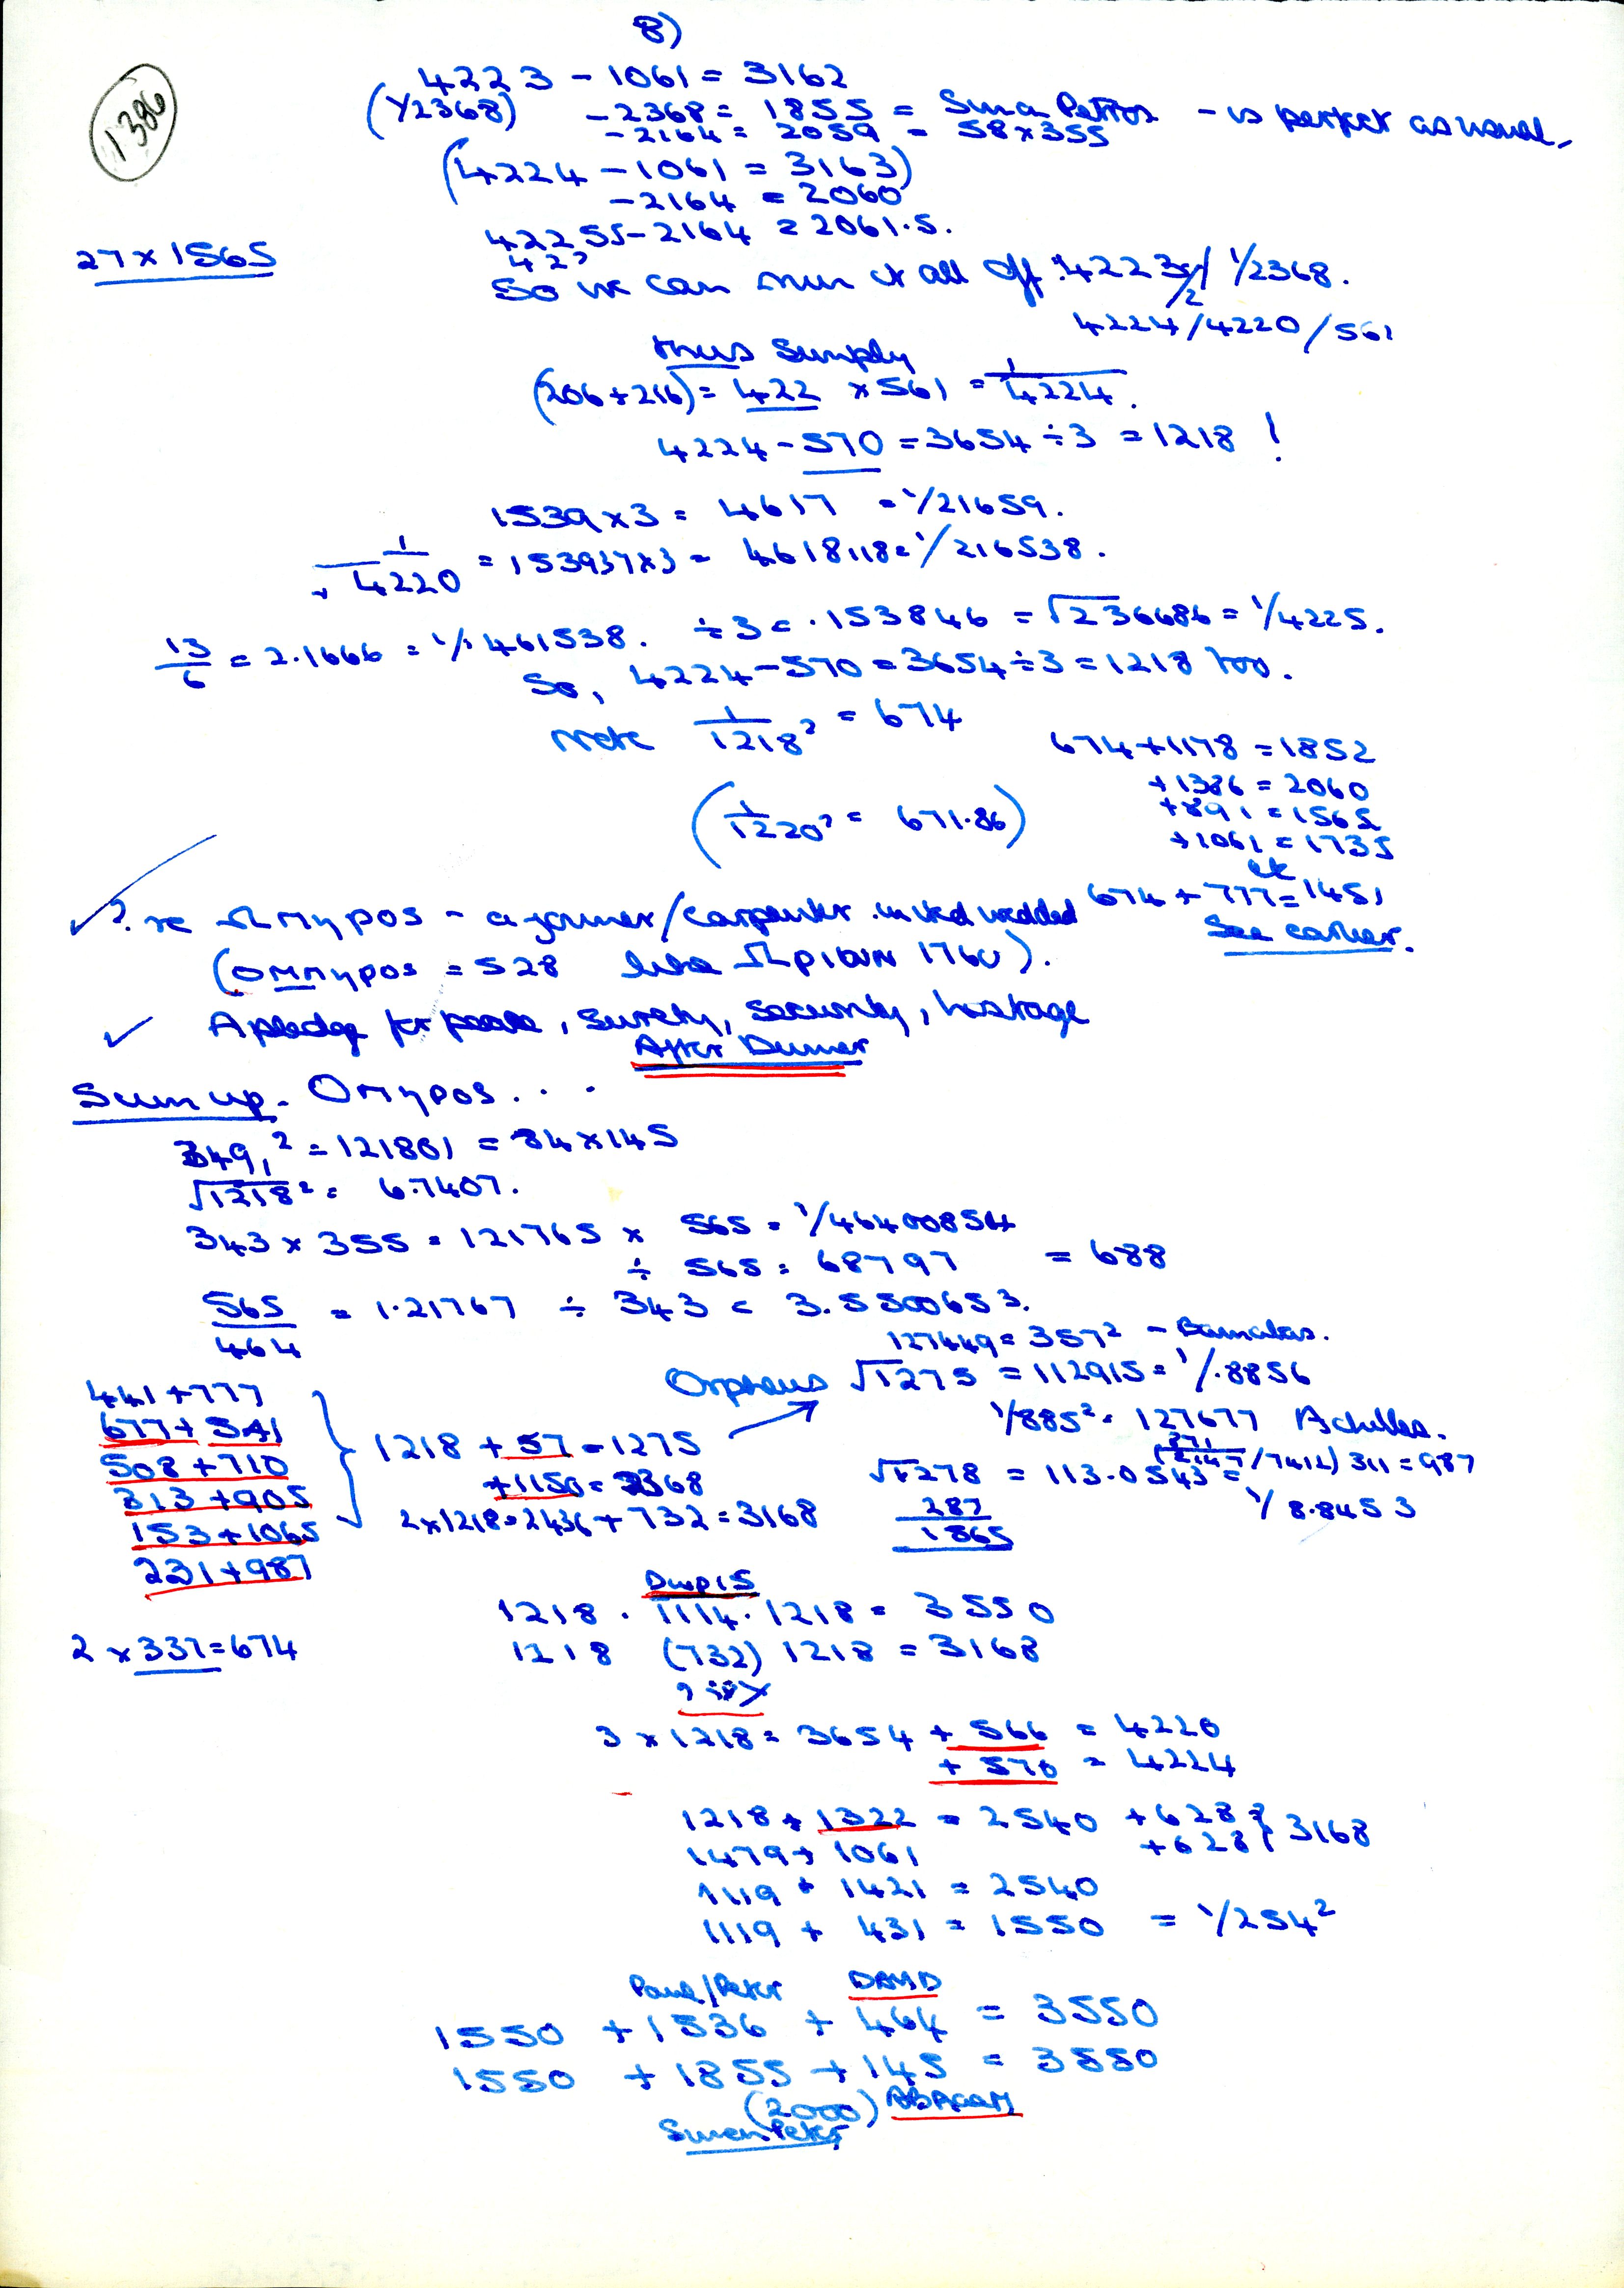 8)
1386
4223 - 1061 = 3162
(1/2368) - 2368 = 1855 = Simon Petros - is perfect as usual.
- 2164 = 2059 = 58 x 355
(4224 - 1061 = 3163)
- 2164 = 2060
42255 - 2164 = 2061.5.
27 x 1565
42?
So we can run it all off 4223 / 1/2368.
4224/4220/561
thus simply
(206+216) = 422 x 561 = 1/4224.
4224 - 570 = 3654 ÷ 3 = 1218 !
1539 x 3 = 4617 = 1/21659.
1/√4220 = 153937 x 3 = 4618118 = 1/216538.
13/6 = 2.1666 = 1/.461538. ÷ 3 = .153846 = √236686 = 1/4225.
So, 4224 - 570 = 3654 ÷ 3 = 1218 too.
Note 1/1218² = 674
674 + 1178 = 1852
+ 1386 = 2060
+ 891 = 1565
+ 1061 = 1735
(1/1220² = 671.86)
etc
674 + 777 = 1451
See earlier.
✓ ? re Ωμηρος - a joiner/carpenter united wedded
(ομηρος = 528 like Ωριων 1760).
✓ A pledge for peace, surety, security, hostage
After Dinner
Sum up. Ομηρος...
349² = 121801 = 84 x 145
√1218² = 6.7407.
343 x 355 = 121765 x 565 = 1/46400854
÷ 565 = 68797 = 688
565/464 = 1.21767 ÷ 343 = 3.5500653.
127449 = 357² - Barnabas.
Orpheus √1275 = 112915 = 1/.8856
1/885² = 127677 Achilles.
441 + 777
677 + 541
508 + 710
313 + 905
153 + 1065
231 + 987
1218 + 57 = 1275
+ 1150 = 2368
2 x 1218 = 2436 + 732 = 3168
√1278 = 113.0543 = 1/8.8453
/7412) 311 = 987
287
1865
Dwpis
1218 . 1114 . 1218 = 3550
2 x 337 = 674
1218 (732) 1218 = 3168
3 x 1218 = 3654 + 566 = 4220
+ 570 = 4224
1218 + 1322 = 2540 + 628 } 3168
1479 + 1061 + 628
1119 + 1421 = 2540
1119 + 431 = 1550 = 1/254²
Paul/Peter DAVID
1550 + 1536 + 464 = 3550
1550 + 1855 + 145 = 3550
(2000) ABRAAM
Simon Peter